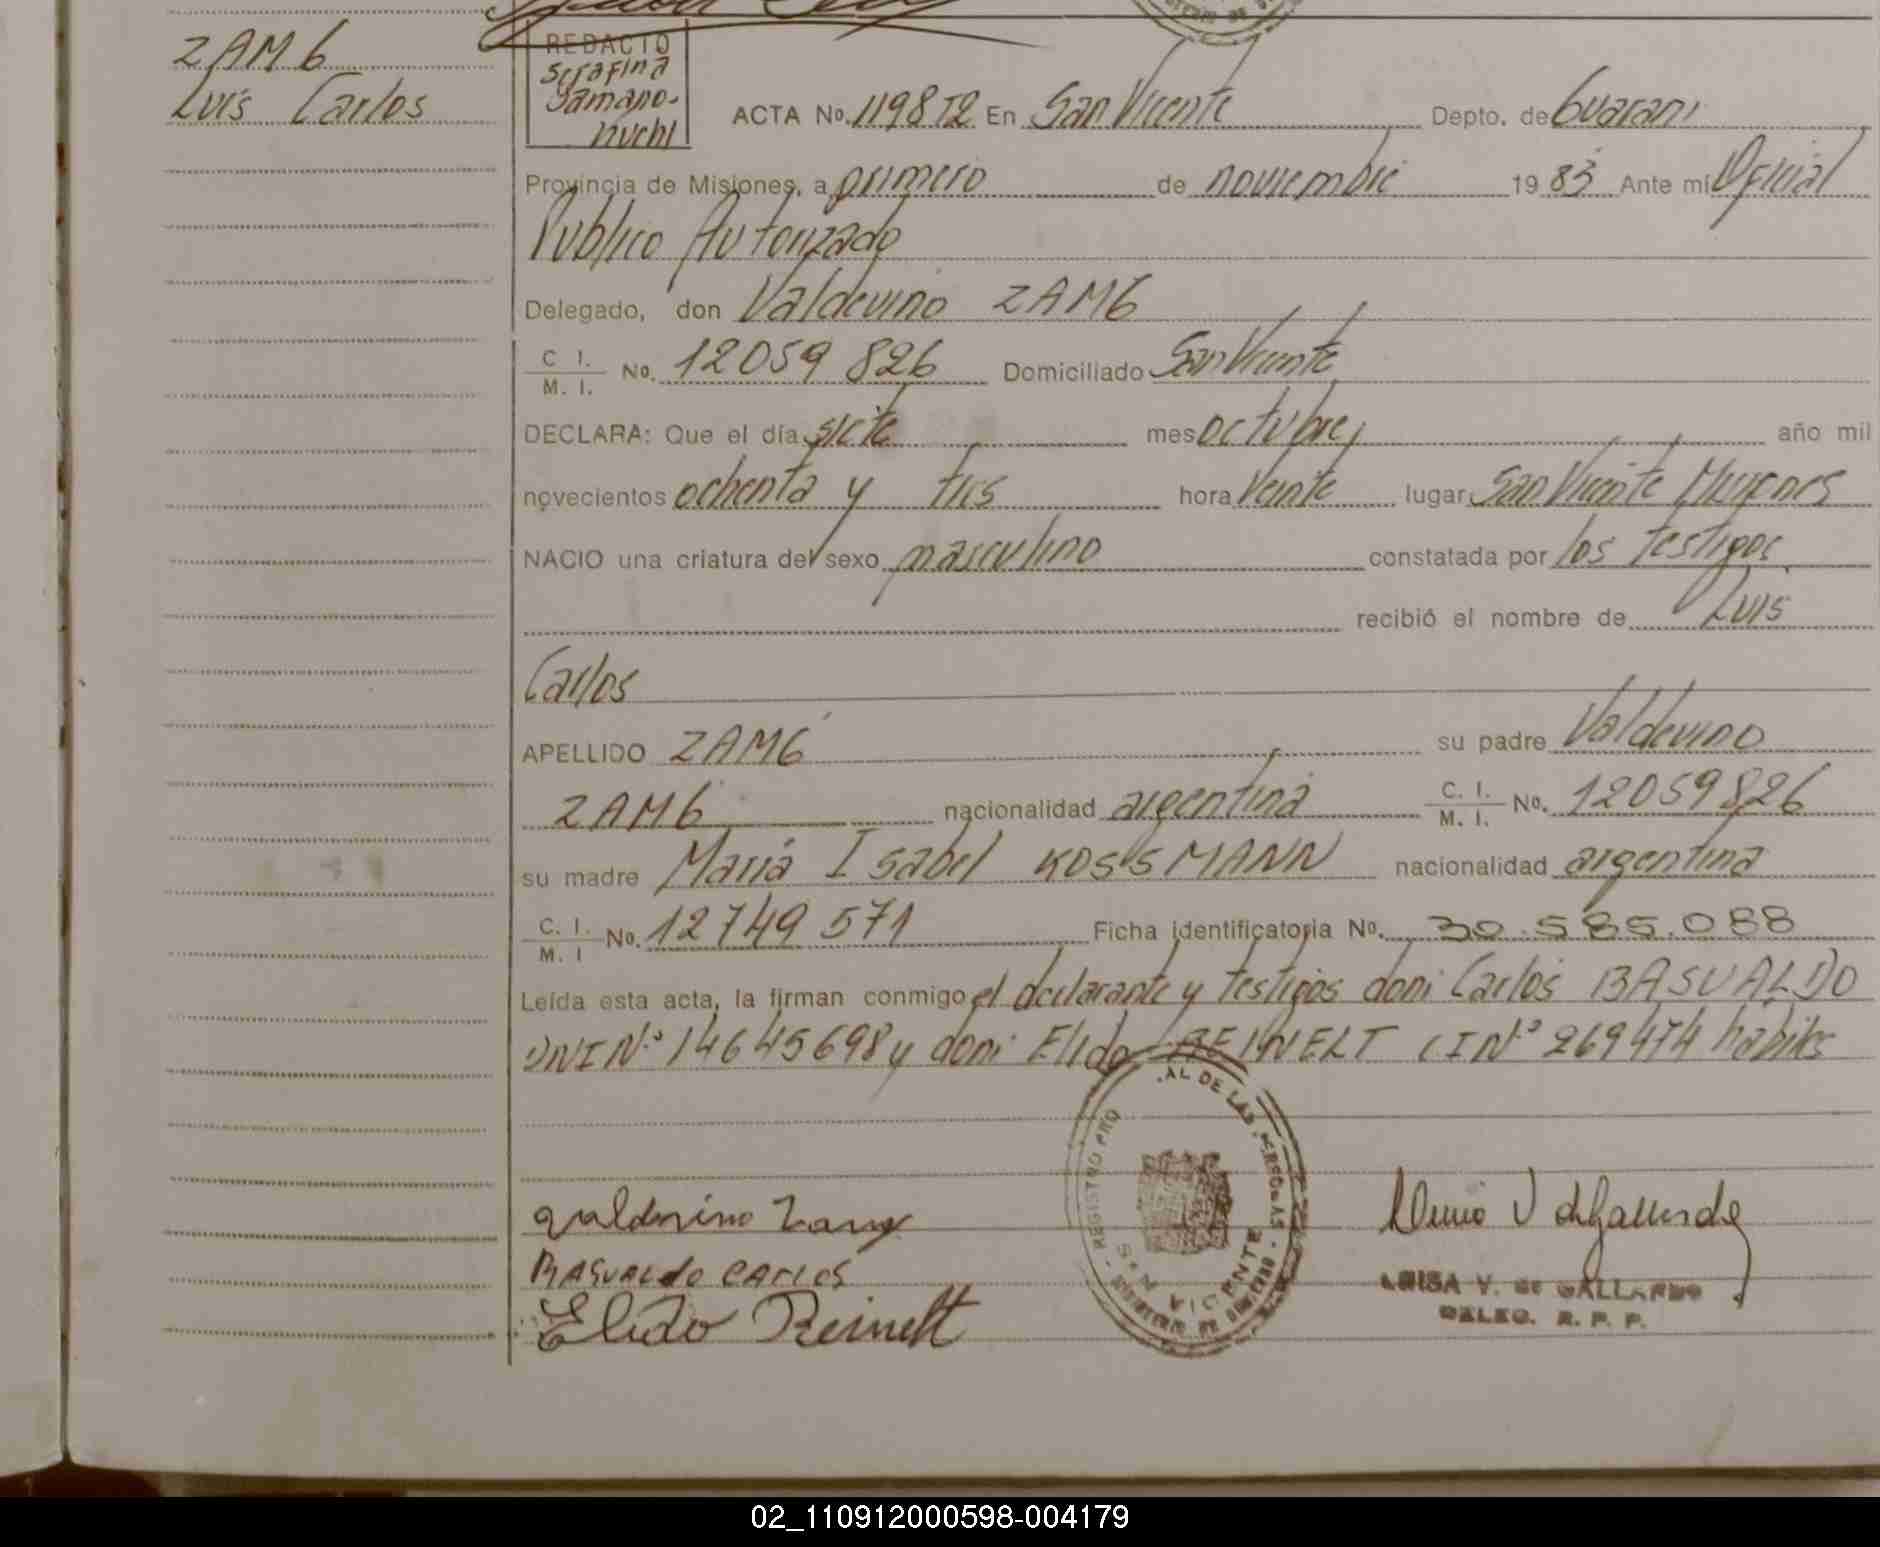 ZAM6
Luis Carlos
REDACTO
Serafina
Yamano-
nuchi
ACTA No. 1198 T2 En San Vicente Depto. de Guarani
Provincia de Misiones, a primero de noviembre 1983 Ante mi Oficial
Publico Autorizado
Delegado, don Valdevino ZAM6
C I.
M. I. No. 12059 826 Domiciliado San Vicente
DECLARA: Que el día siete mes octubre, año mil
novecientos ochenta y tres hora veinte lugar San Vicente Misiones
NACIO una criatura del sexo masculino constatada por los testigos
recibió el nombre de Luis
Carlos
APELLIDO ZAM6 su padre Valdevino
ZAM6 nacionalidad argentina C. I.
M. I. No. 12059826
su madre María Isabel KOSSMANN nacionalidad argentina
C. I.
M. I No. 12749 571 Ficha identificatoria No. 30.585.088
Leída esta acta, la firman conmigo el declarante y testigos don: Carlos BASUALDO
DNI N.º 14645698 y don: Elido REINELT CI Nº 269474 habiles
REGISTRO PRO AL DE LAS PERSONAS
SAN VICENTE
Valdevino Zamg
BASUALdo CARLOS
Elido Reinelt
LUISA V. de GALLARDO
DELEG. R. P. P.
02_110912000598-004179